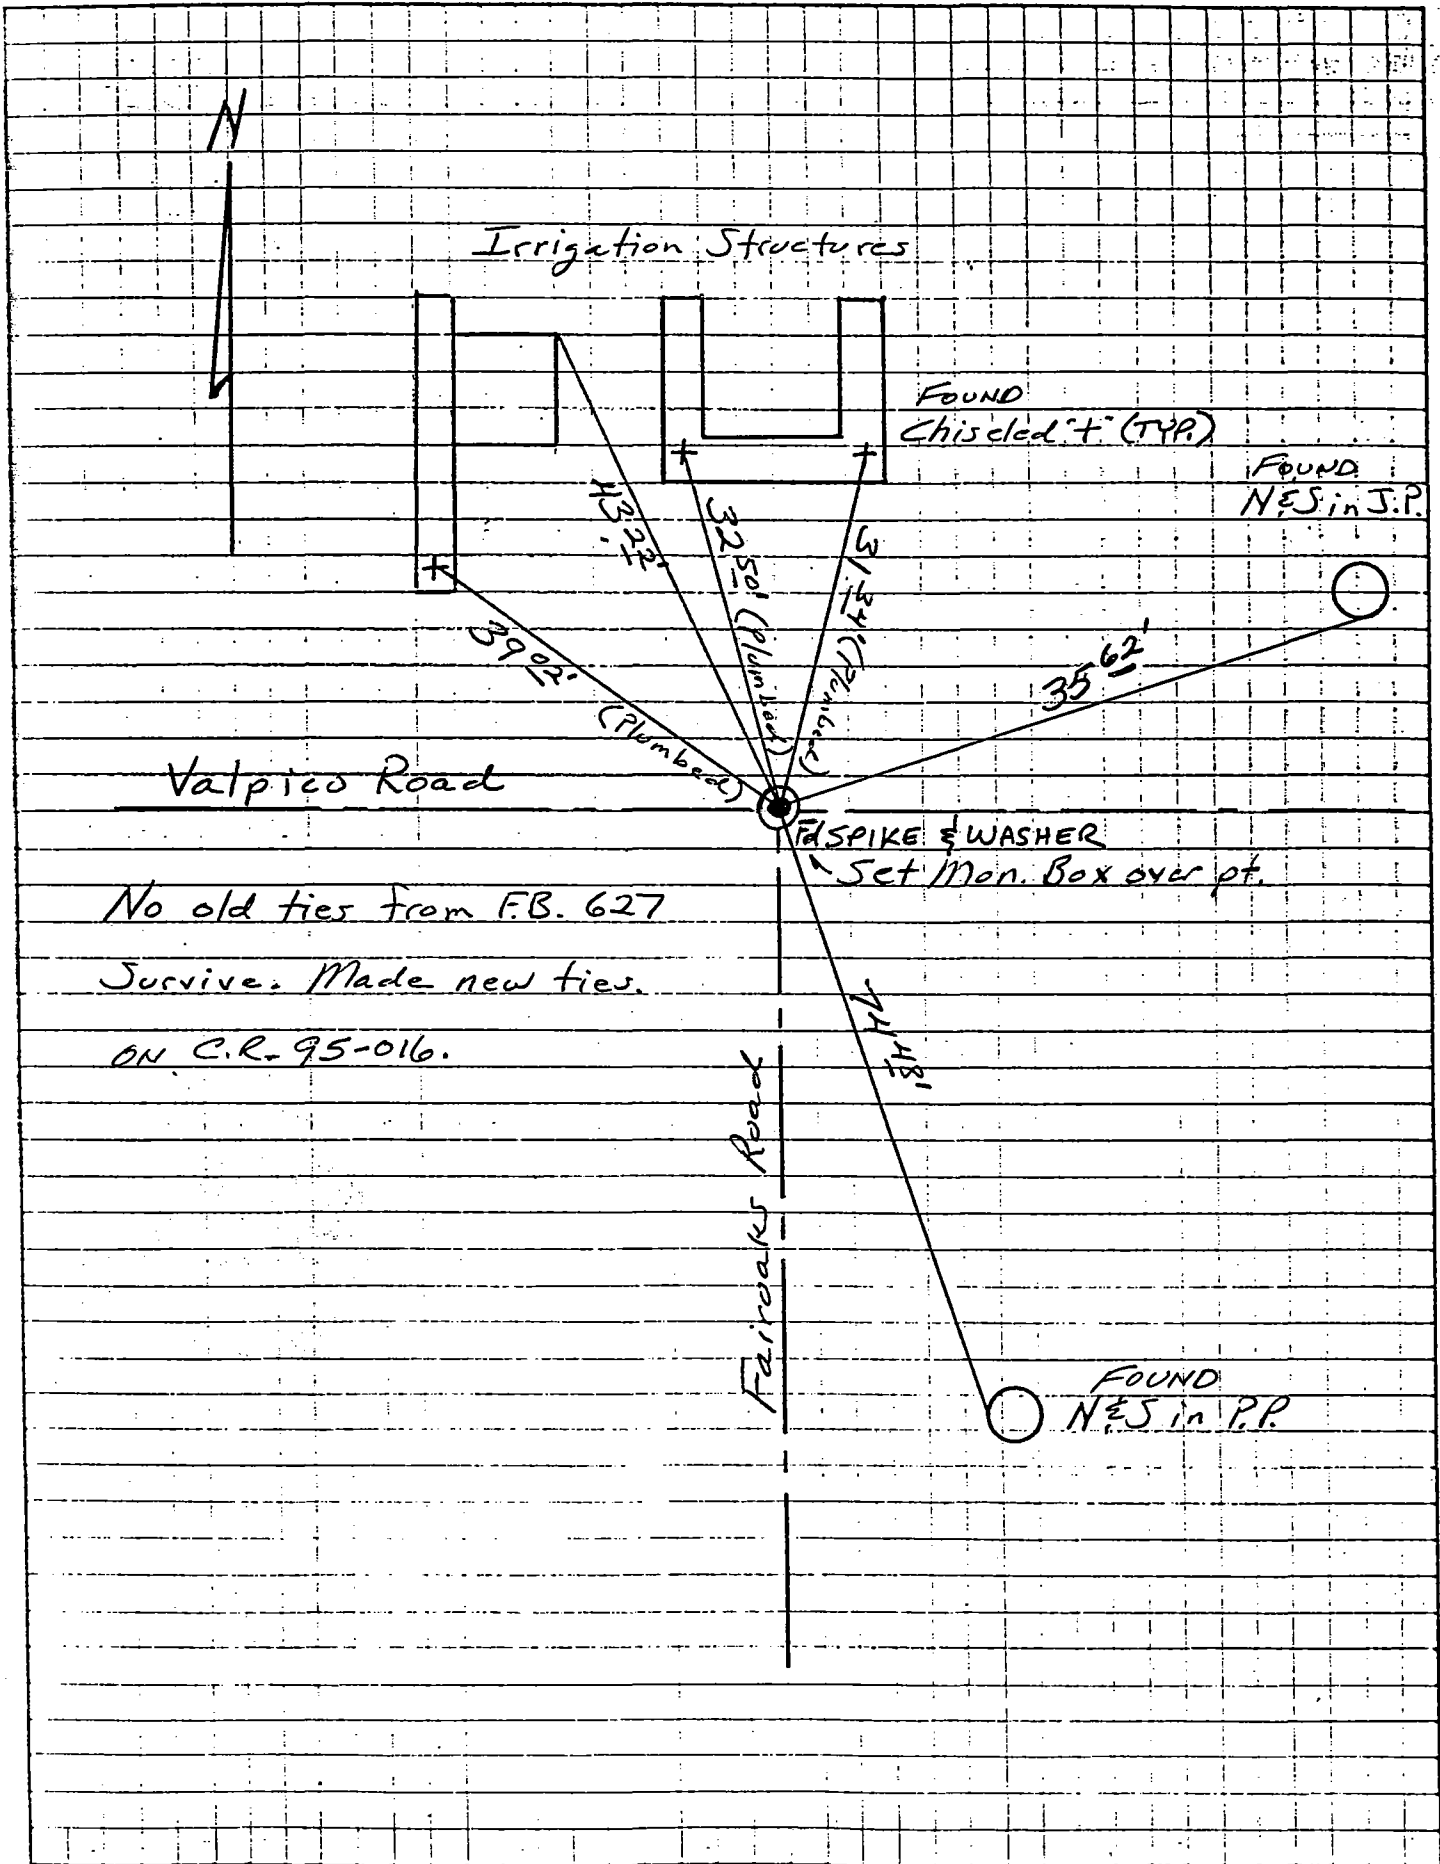 N
Irrigation Structures
FOUND
Chiseled "+" (TYP.)
FOUND
N&S in J.P.
43.22'
32.50' (Plumbed)
31.34' (Plumbed)
35.62'
39.02'
(Plumbed)
Valpico Road
Fd SPIKE & WASHER
Set Mon. Box over pt.
No old ties from F.B. 627
Survive. Made new ties.
ON C.R. 95-016.
74.48'
Fairoaks Road
FOUND
N&S in P.P.